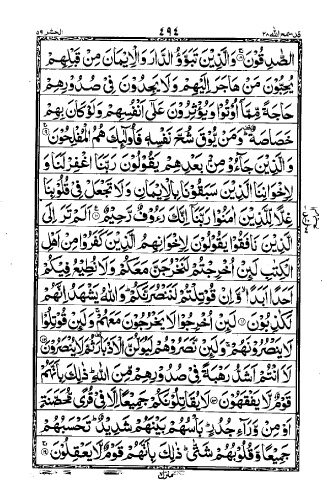 قد سمع الله ٢٨ ٤٩٤ الحشر ٥٩
الصّٰدِقُوْنَ وَالَّذِيْنَ تَبَوَّؤُ الدَّارَ وَالْاِيْمَانَ مِنْ قَبْلِهِمْ
يُحِبُّوْنَ مَنْ هَاجَرَ اِلَيْهِمْ وَلَا يَجِدُوْنَ فِيْ صُدُوْرِهِمْ
حَاجَةً مِّمَّا اُوْتُوْا وَيُؤْثِرُوْنَ عَلٰٓى اَنْفُسِهِمْ وَلَوْ كَانَ بِهِمْ
خَصَاصَةٌ وَمَنْ يُّوْقَ شُحَّ نَفْسِهٖ فَاُولٰٓئِكَ هُمُ الْمُفْلِحُوْنَ
وَالَّذِيْنَ جَآءُوْ مِنْۢ بَعْدِهِمْ يَقُوْلُوْنَ رَبَّنَا اغْفِرْ لَنَا وَ
لِاِخْوَانِنَا الَّذِيْنَ سَبَقُوْنَا بِالْاِيْمَانِ وَلَا تَجْعَلْ فِيْ قُلُوْبِنَا
غِلًّا لِّلَّذِيْنَ اٰمَنُوْا رَبَّنَآ اِنَّكَ رَءُوْفٌ رَّحِيْمٌ اَلَمْ تَرَ اِلَى
الَّذِيْنَ نَافَقُوْا يَقُوْلُوْنَ لِاِخْوَانِهِمُ الَّذِيْنَ كَفَرُوْا مِنْ اَهْلِ
الْكِتٰبِ لَئِنْ اُخْرِجْتُمْ لَنَخْرُجَنَّ مَعَكُمْ وَلَا نُطِيْعُ فِيْكُمْ
اَحَدًا اَبَدًا وَّاِنْ قُوْتِلْتُمْ لَنَنْصُرَنَّكُمْ وَاللّٰهُ يَشْهَدُ اِنَّهُمْ
لَكٰذِبُوْنَ لَئِنْ اُخْرِجُوْا لَا يَخْرُجُوْنَ مَعَهُمْ وَلَئِنْ قُوْتِلُوْا
لَا يَنْصُرُوْنَهُمْ وَلَئِنْ نَّصَرُوْهُمْ لَيُوَلُّنَّ الْاَدْبَارَ ثُمَّ لَا يُنْصَرُوْنَ
لَاَ انْتُمْ اَشَدُّ رَهْبَةً فِيْ صُدُوْرِهِمْ مِّنَ اللّٰهِ ذٰلِكَ بِاَنَّهُمْ
قَوْمٌ لَّا يَفْقَهُوْنَ لَا يُقَاتِلُوْنَكُمْ جَمِيْعًا اِلَّا فِيْ قُرًى مُّحَصَّنَةٍ
اَوْ مِنْ وَّرَآءِ جُدُرٍ بَاْسُهُمْ بَيْنَهُمْ شَدِيْدٌ تَحْسَبُهُمْ
جَمِيْعًا وَّقُلُوْبُهُمْ شَتّٰى ذٰلِكَ بِاَنَّهُمْ قَوْمٌ لَّا يَعْقِلُوْنَ
منزل